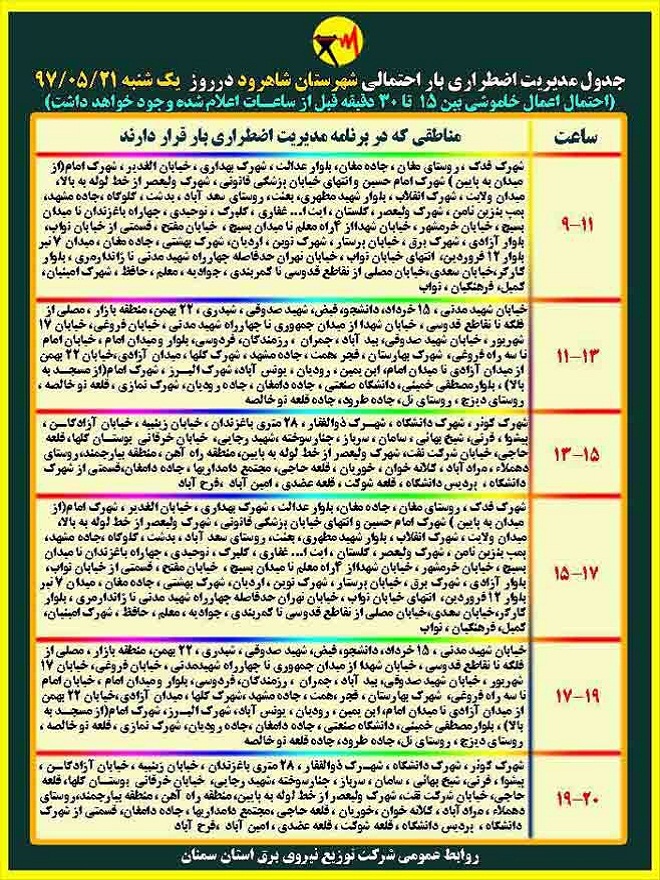 جدول مدیریت اضطراری بار احتمالی شهرستان شاهرود در روز یک شنبه ۹۷/۰۵/۲۱
(احتمال اعمال خاموشی بین ۱۵ تا ۳۰ دقیقه قبل از ساعات اعلام شده وجود خواهد داشت)
ساعت
مناطقی که در برنامه مدیریت اضطراری بار قرار دارند
۹-۱۱
شهرک فدک ، روستای مغان ، جاده مغان، بلوار عدالت ، شهرک بهداری ، خیابان الغدیر ، شهرک امام(از
میدان به پایین ) شهرک امام حسین و انتهای خیابان پزشکی قانونی ، شهرک ولیعصر از خط لوله به بالا،
میدان ولایت ، شهرک انقلاب ، بلوار شهید مطهری، بعثت، روستای سعد آباد ، پدشت ، گلوگاه ،جاده مشهد،
پمپ بنزین نامن ، شهرک ولیعصر ، گلستان ، آیت ا... غفاری ، گلبرک ، توحیدی ، چهارراه باغزندان تا میدان
بسیج ، خیابان خرمشهر ، خیابان شهدااز ۴راه معلم تا میدان بسیج ، خیابان مفتح ، قسمتی از خیابان نواب،
بلوار آزادی ، شهرک برق ، خیابان پرستار ، شهرک نوین ، اردیان، شهرک بهشتی ، جاده مغان ، میدان ۷ تیر
بلوار ۱۲ فروردین، انتهای خیابان نواب ، خیابان تهران حدفاصله چهارراه شهید مدنی تا ژاندارمری ، بلوار
کارگر،خیابان سعدی،خیابان مصلی از تقاطع فردوسی تا کمربندی ، جوادیه ، معلم ، حافظ ، شهرک امینیان،
کمیل، فرهنگیان ، نواب
۱۱-۱۳
خیابان شهید مدنی ، ۱۵ خرداد، دانشجو، فیض، شهید صدوقی ، شبدری ، ۲۲ بهمن، منطقه بازار ، مصلی از
فلکه تا تقاطع فردوسی ، خیابان شهدا از میدان جمهوری تا چهارراه شهید مدنی ، خیابان فروغی، خیابان ۱۷
شهریور ، خیابان شهید صدوقی، بید آباد ، چمران ، رزمندگان، فردوسی، بلوار و میدان امام ، خیابان امام
تا سه راه فروغی، شهرک بهارستان ، فجر ،همت ، جاده مشهد ، شهرک گلها، میدان آزادی،خیابان ۲۲ بهمن
از میدان آزادی تا میدان امام، ابن یمین ، رودیان ، یونس آباد، شهرک البرز ، شهرک امام(از مسجد به
بالا) ، بلوارمصطفی خمینی، دانشگاه صنعتی ، جاده دامغان ، جاده رودیان، شهرک نمازی ، قلعه نو خالصه ،
روستای دیزج ، روستای تل، جاده طرود، جاده قلعه نو خالصه
۱۳-۱۵
شهرک کوثر ، شهرک دانشگاه ، شهرک ذوالفقار ، ۲۸ متری باغزندان ، خیابان زینبیه ، خیابان آزادگان ،
پیشوا ، قرنی، شیخ بهائی ، سامان ، سرباز ، چنارسوخته ،شهید رجایی، خیابان خرقانی بوستان گلها، قلعه
حاجی، خیابان شرکت نفت، شهرک ولیعصر از خط لوله به پایین، منطقه راه آهن ، منطقه بیارجمند،روستای
دهملاء ، مراد آباد ، کلاته خوان ، خوریان ، قلعه حاجی، مجتمع دامداریها ، جاده دامغان،قسمتی از شهرک
دانشگاه ، پردیس دانشگاه ، قلعه شوکت ، قلعه عضدی ، امین آباد ،فرح آباد
۱۵-۱۷
شهرک فدک ، روستای مغان ، جاده مغان، بلوار عدالت ، شهرک بهداری ، خیابان الغدیر ، شهرک امام(از
میدان به پایین ) شهرک امام حسین و انتهای خیابان پزشکی قانونی ، شهرک ولیعصر از خط لوله به بالا،
میدان ولایت ، شهرک انقلاب ، بلوار شهید مطهری، بعثت، روستای سعد آباد ، پدشت ، گلوگاه ،جاده مشهد،
پمپ بنزین نامن ، شهرک ولیعصر ، گلستان ، آیت ا... غفاری ، گلبرک ، توحیدی ، چهارراه باغزندان تا میدان
بسیج ، خیابان خرمشهر ، خیابان شهدااز ۴راه معلم تا میدان بسیج ، خیابان مفتح ، قسمتی از خیابان نواب،
بلوار آزادی ، شهرک برق ، خیابان پرستار ، شهرک نوین ، اردیان، شهرک بهشتی ، جاده مغان ، میدان ۷ تیر
بلوار ۱۲ فروردین، انتهای خیابان نواب ، خیابان تهران حدفاصله چهارراه شهید مدنی تا ژاندارمری ، بلوار
کارگر،خیابان سعدی،خیابان مصلی از تقاطع فردوسی تا کمربندی ، جوادیه ، معلم ، حافظ ، شهرک امینیان،
کمیل، فرهنگیان ، نواب
۱۷-۱۹
خیابان شهید مدنی ، ۱۵ خرداد، دانشجو، فیض، شهید صدوقی ، شبدری ، ۲۲ بهمن، منطقه بازار ، مصلی از
فلکه تا تقاطع فردوسی ، خیابان شهدا از میدان جمهوری تا چهارراه شهیدمدنی ، خیابان فروغی، خیابان ۱۷
شهریور ، خیابان شهید صدوقی، بید آباد ، چمران ، رزمندگان، فردوسی، بلوار و میدان امام ، خیابان امام
تا سه راه فروغی، شهرک بهارستان ، فجر ،همت ، جاده مشهد ،شهرک گلها، میدان آزادی،خیابان ۲۲ بهمن
از میدان آزادی تا میدان امام، ابن یمین ، رودیان ، یونس آباد، شهرک البرز ، شهرک امام(از مسجد به
بالا) ، بلوارمصطفی خمینی، دانشگاه صنعتی ، جاده دامغان ، جاده رودیان، شهرک نمازی ، قلعه نو خالصه ،
روستای دیزج ، روستای تل، جاده طرود، جاده قلعه نو خالصه
۱۹-۲۰
شهرک کوثر ، شهرک دانشگاه ، شهرک ذوالفقار ، ۲۸ متری باغزندان ، خیابان زینبیه ، خیابان آزادگان ،
پیشوا ، قرنی، شیخ بهائی ، سامان ، سرباز ، چنارسوخته ،شهید رجایی، خیابان خرقانی بوستان گلها، قلعه
حاجی، خیابان شرکت نفت، شهرک ولیعصر از خط لوله به پایین، منطقه راه آهن ، منطقه بیارجمند،روستای
دهملاء ، مراد آباد ، کلاته خوان ،خوریان ، قلعه حاجی ،مجتمع دامداریها ، جاده دامغان، قسمتی از شهرک
دانشگاه ، پردیس دانشگاه ، قلعه شوکت ، قلعه عضدی ، امین آباد ،فرح آباد
روابط عمومی شرکت توزیع نیروی برق استان سمنان